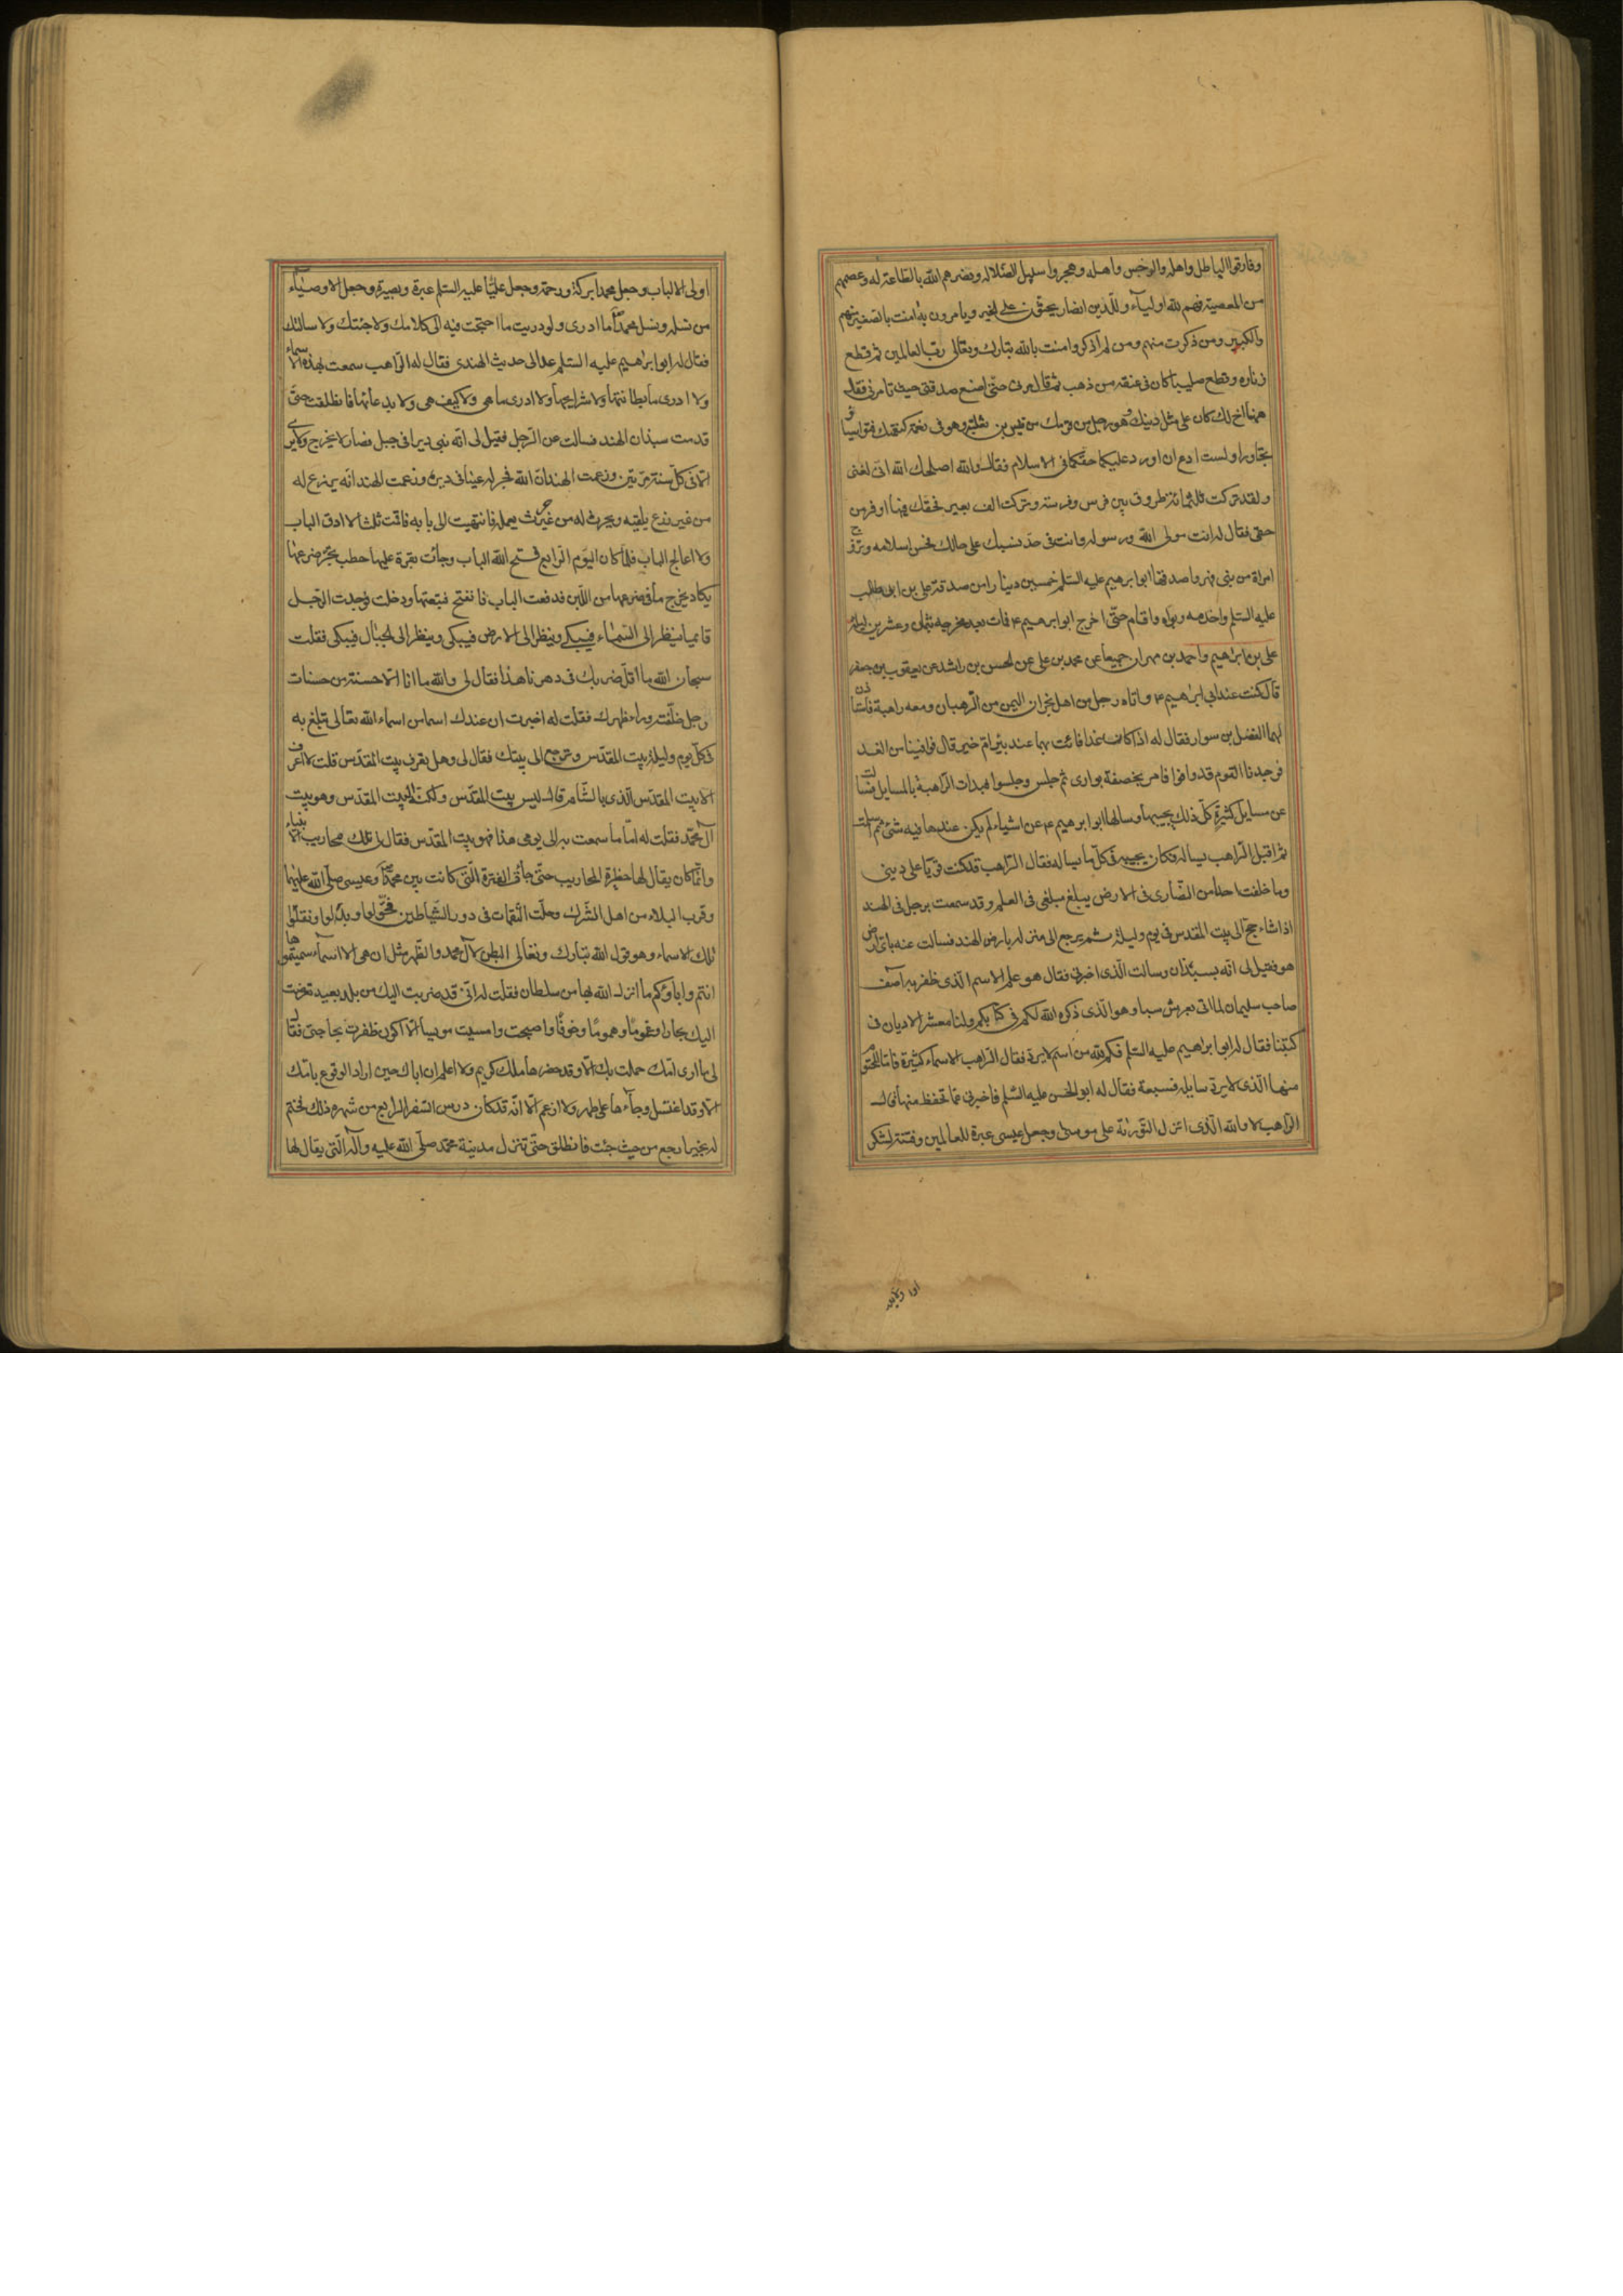 وفارقوا الباطل واهله والرجس واهله وهجروا سبيل الضلالة ونصرهم الله بالطاعة له وعصمهم
من المعصية فهم لله اولياء وللدين انصار يحثون على الخير ويامرون به امنت بالصغير منهم
والكبير ومن ذكرت منهم ومن لم اذكر وامنت بالله تبارك وتعالى رب العالمين ثم قطع
زناره وقطع صليبا كان فى عنقه من ذهب ثم قال مرنى حتى اضع صدقتى حيث تامرنى فقال
ههنا اخ لك كان على مثل دينك وهو رجل من قومك من قيس بن ثعلبة وهو فى نعمة كنعمتك فتواسيا
وتجاورا ولست ادع ان اورد عليكما حقكما فى الاسلام فقال والله اصلحك الله انى لغنى
ولقد تركت ثلثمائة طروق بين فرس وفرسة وتركت الف بعير فحقك فيها اوفر من
حقى فقال له انت مولى الله ورسوله وانت فى حد نسبك على حالك فحسن اسلامه وتزوج
امراة من بنى فهر واصدقها ابو ابرهيم عليه السلم خمسين دينارا من صدقة على بن ابى طالب
عليه السلم واخدمه وبواه واقام حتى اخرج ابو ابرهيم ع فمات بعد مخرجه بثمان وعشرين ليلة
على بن ابراهيم واحمد بن مهران جميعا عن محمد بن على عن الحسن بن راشد عن يعقوب بن جعفر
قال كنت عند ابى ابرهيم ع واتاه رجل من اهل نجران اليمن من الرهبان ومعه راهبة فاستاذن
لهما الفضل بن سوار فقال له اذا كان غدا فائت بهما عند بئر ام خير قال فوافينا من الغد
فوجدنا القوم قد وافوا فامر بخصفة بوارى ثم جلس وجلسوا فبدات الراهبة بالمسايل فسالت
عن مسايل كثيرة كل ذلك يجيبها وسالها ابو ابرهيم ع عن اشياء لم يكن عندها فيه شئ ثم اسلمت
ثم اقبل الراهب يساله فكان يجيبه فى كل ما يساله فقال الراهب قد كنت قويا على دينى
وما خلفت احدا من النصارى فى الارض يبلغ مبلغى فى العلم ولقد سمعت برجل فى الهند
اذا شاء حج الى بيت المقدس فى يوم وليلة ثم يرجع الى منزله بارض الهند فسالت عنه باى ارض
هو فقيل لى انه بسبذان وسالت الذى اخبرنى فقال هو علم الاسم الذى ظفر به اصف
صاحب سليمان لما اتى بعرش سبا وهو الذى ذكره الله لكم فى كتابكم ولنا معشر الاديان فى
كتبنا فقال له ابو ابراهيم عليه السلم فكم لله من اسم لا يرد فقال الراهب الاسماء كثيرة فاما المحتوم
منها الذى لا يرد سايله فسبعة فقال له ابو الحسن عليه السلم فاخبرنى عما تحفظ منها قال
الراهب لا والله الذى انزل التورية على موسى وجعل عيسى عبرة للعالمين وفتنة لشكر
اولى الالباب وجعل محمدا بركة ورحمة وجعل عليا عليه السلم عبرة وبصيرة وجعل الاوصياء
من نسله ونسل محمد ما ادرى ولو دريت ما احتجت فيه الى كلامك ولا جئتك ولا سالتك
فقال له ابو ابرهيم عليه السلم عد الى حديث الهندى فقال له الراهب سمعت بهذه الاسماء
ولا ادرى ما بطانتها ولا شرايحها ولا ادرى ما هى ولا كيف هى ولا بدعائها فانطلقت حتى
قدمت سبذان الهند فسالت عن الرجل فقيل لى انه بنى ديرا فى جبل فصار لا يخرج ولا يرى
الا فى كل سنة مرتين وزعمت الهند ان الله فجر له عينا فى ديره وزعمت الهند انه يزرع له
من غير زرع يلقيه ويحرث له من غير حرث يعمله فانتهيت الى بابه فاقمت ثلثا لا ادق الباب
ولا اعالج الباب فلما كان اليوم الرابع فتح الله الباب وجائت بقرة عليها حطب تجر ضرعها
يكاد يخرج ما فى ضرعها من اللبن فدفعت الباب فانفتح فتبعتها ودخلت فوجدت الرجل
قايما ينظر الى السماء فيبكى وينظر الى الارض فيبكى وينظر الى الجبال فيبكى فقلت
سبحان الله ما اقل ضربك فى دهرنا هذا فقال لى والله ما انا الا حسنة من حسنات
رجل خلفته وراء ظهرك فقلت له اخبرت ان عندك اسما من اسماء الله تعالى تبلغ به
فى كل يوم وليلة بيت المقدس وترجع الى بيتك فقال لى وهل تعرف بيت المقدس قلت لا اعرف
الا بيت المقدس الذى بالشام قال ليس بيت المقدس ولكنه البيت المقدس وهو بيت
آل محمد فقلت له اما ما سمعت به الى يومى هذا فهو بيت المقدس فقال لى تلك محاريب الانبياء
وانما كان يقال لها حظيرة المحاريب حتى جائت الفترة التى كانت بين محمد وعيسى صلى الله عليهما
وقرب البلاء من اهل الشرك وحلت النقمات فى دور الشياطين فحولوا وبدلوا ونقلوا
تلك الاسماء وهو قول الله تبارك وتعالى البطن لآل محمد والظهر مثل ان هى الا اسماء سميتموها
انتم واباؤكم ما انزل الله بها من سلطان فقلت له انى قد ضربت اليك من بلد بعيد تعرضت
اليك بحارا وغموما وهموما وخوفا واصبحت وامسيت مويسا الا اكون ظفرت بحاجتى فقال
لى ما ارى امك حملت بك الا وقد حضرها ملك كريم ولا اعلم ان اباك حين اراد الوقوع بامك
الا وقد اغتسل وجاءها على طهر ولا ازعم الا انه قد كان درس السفر الرابع من شهره ذلك فختم
له بخير ارجع من حيث جئت فانطلق حتى تنزل مدينة محمد صلى الله عليه واله التى يقال لها